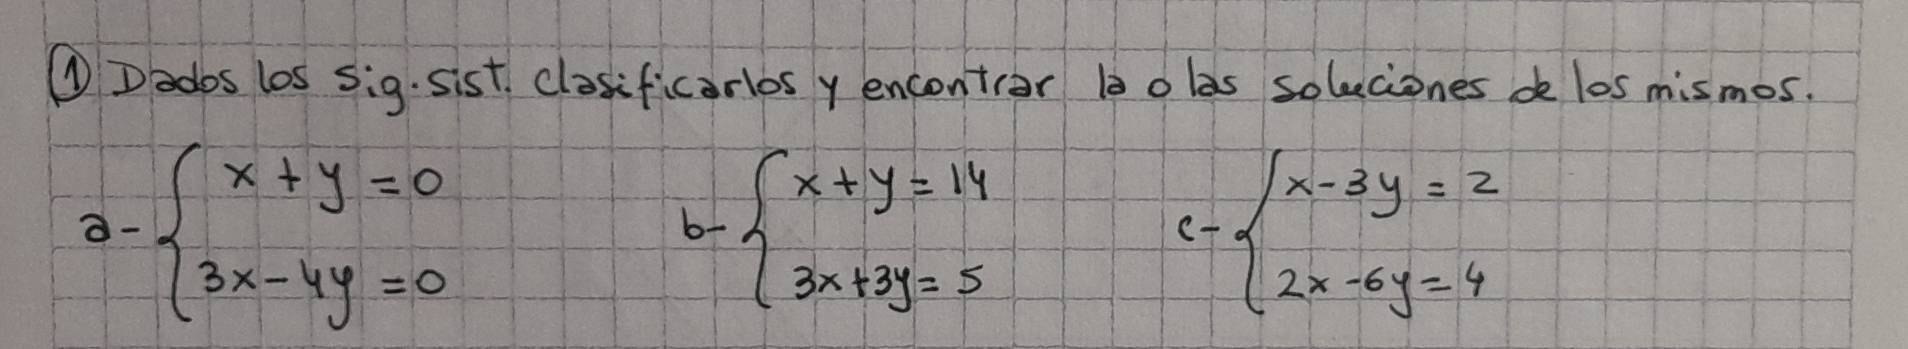 ① Dados los sig. sist. clasificarlos y encontrar la o las soluciones de los mismos.
a- { x + y = 0
3x - 4y = 0
b- { x + y = 14
3x + 3y = 5
c- { x - 3y = 2
2x - 6y = 4